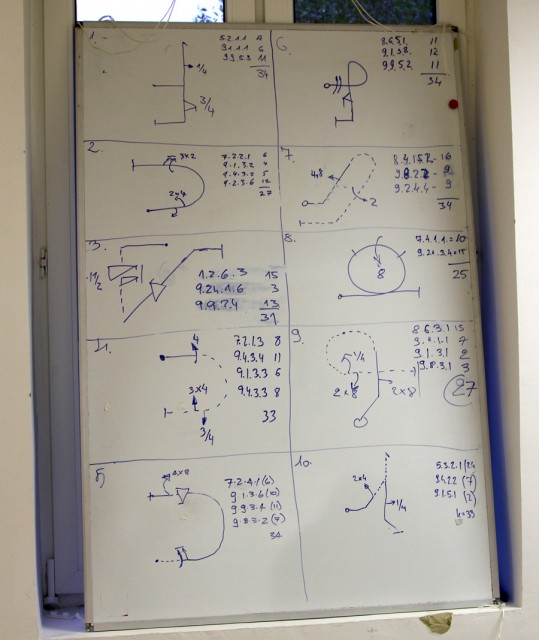 1.
5.2.1.1 7
9.1.1.1 6
9.9.5.3 11
34
1/4
3/4
6.
8.6.5.1. 11
9.1.3.8. 12
9.9.5.2. 11
34
2.
3x2
2x4
7.2.2.1 6
9.1.3.2 4
9.4.3.2 5
9.2.3.6 12
27
7.
4x8
2
9.2.4.4 - 9
34
3.
1 1/2
1.2.6.3 15
9.24.1.6 3
9.9.3.4 13
31
8.
8
7.4.1.1. = 10
25
4.
4
3x4
3/4
7.2.1.3 8
9.4.3.4 11
9.1.3.3 6
9.4.3.3 8
33
9.
1/4
2x8
2x8
8.6.3.1 15
9.1.3.1 2
9.8.3.1 3
27
5
7.2.4.1 (6)
9.1.3.6 (10)
9.9.3.4 (11)
9.8.3.2 (7)
34
10.
2x4
1/4
5.3.2.1 (24
9.4.2.2 (7)
9.1.5.1 (2)
k=33